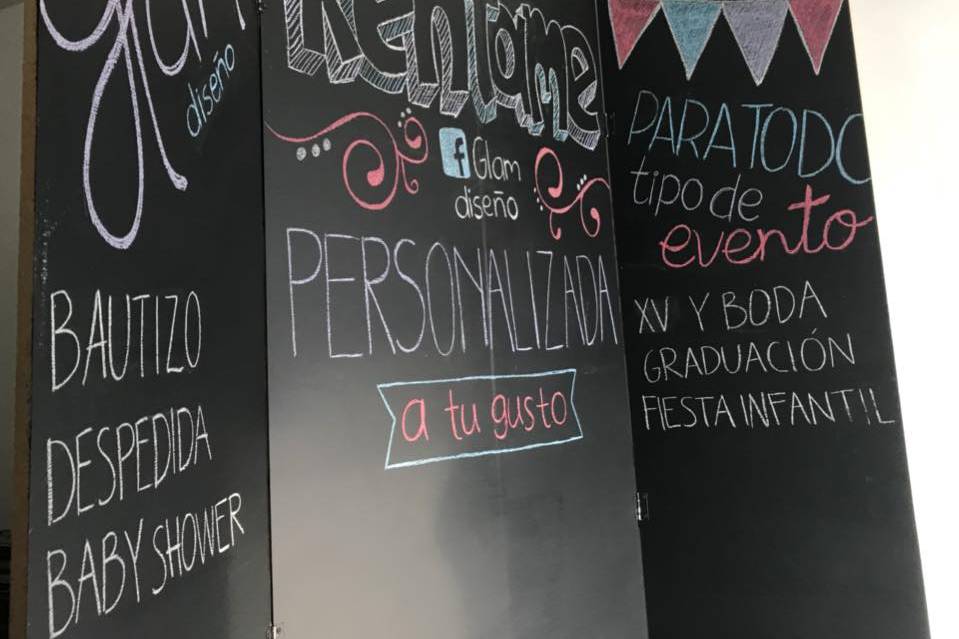 glam
diseño
BAUTIZO
DESPEDIDA
BABY SHOWER
Rentame
f Glam
diseño
PERSONALIZADA
a tu gusto
PARA TODO
tipo de
evento
XV Y BODA
GRADUACIÓN
FIESTA INFANTIL